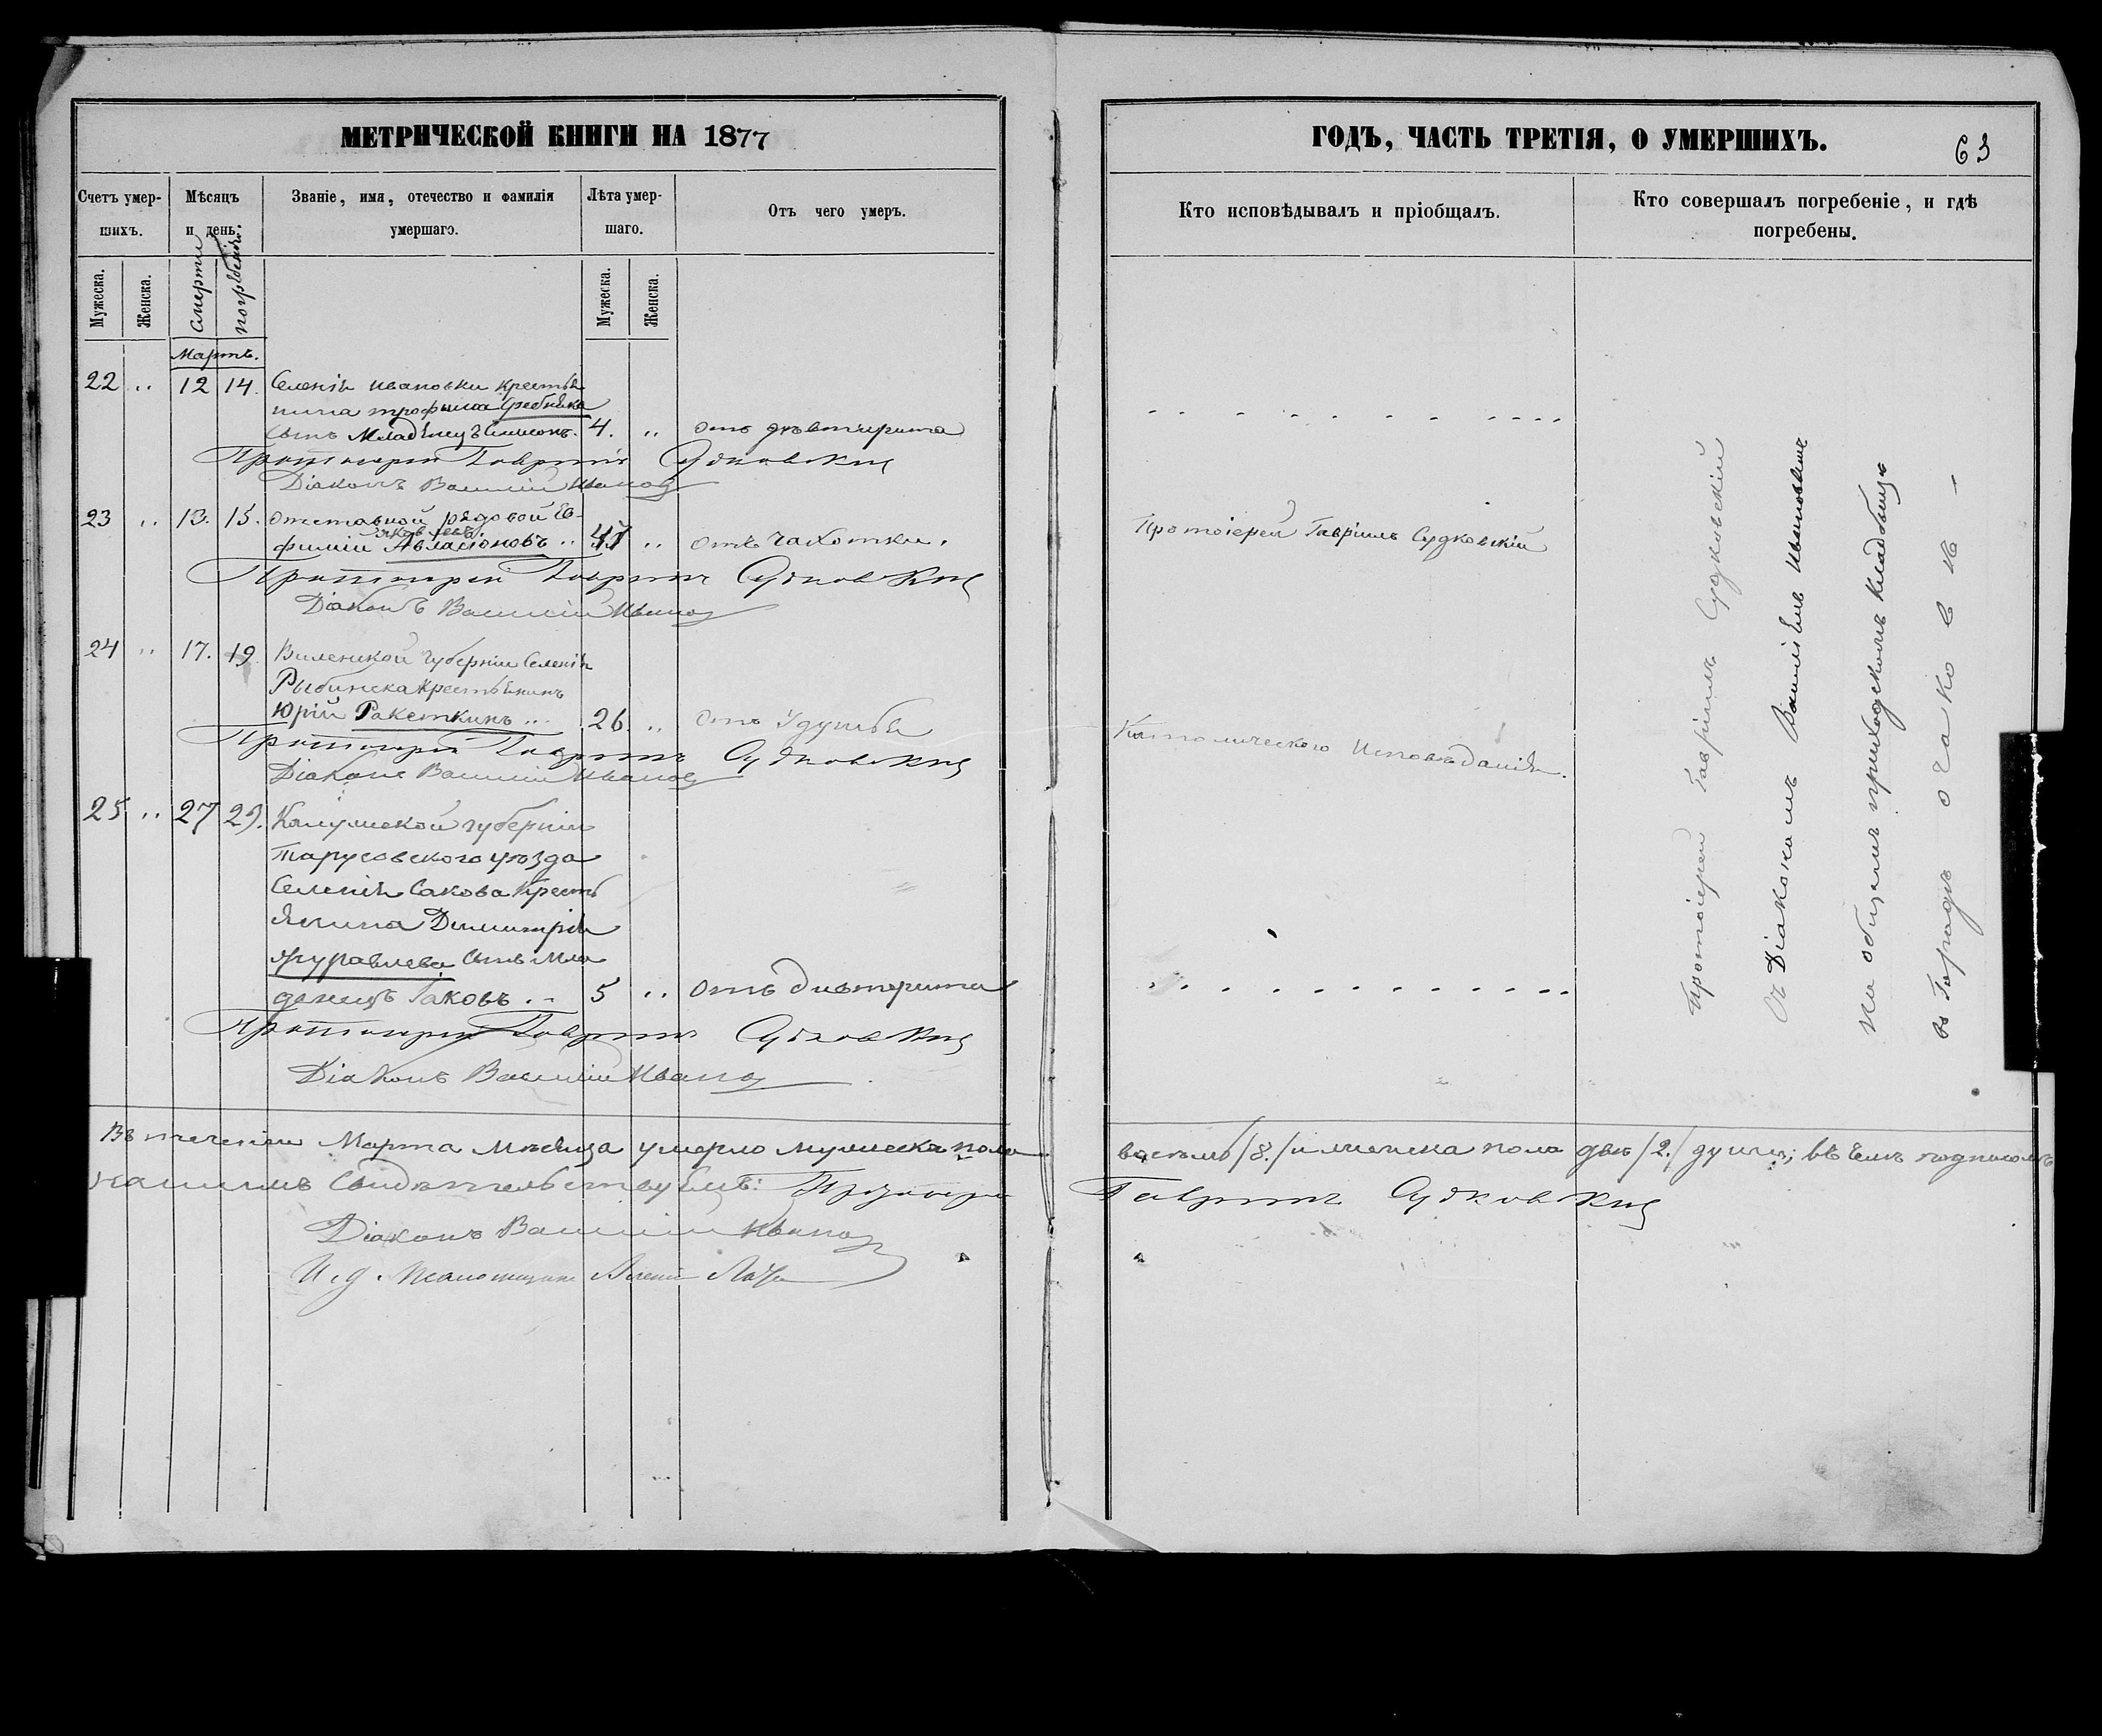 МЕТРИЧЕСКОЙ КНИГИ НА 1877
Счетъ умер-
шихъ.
Мѣсяцъ
и день.
Званіе, имя, отечество и фамилія
умершаго.
Лѣта умер-
шаго.
Отъ чего умеръ.
Мужеска.
Женска.
смерти
погребенія.
Мужеска.
Женска.
Мартъ.
22 .. 12 14. Селенія Ивановки крестья
нина трофима Гребняка
сынъ Младенецъ Симеонъ. 4. .. отъ дѣвтерита
Протоіерей Гавріилъ Судковскій
Діаконъ Василій Иванов
23 .. 13. 15. отставной рядовой Ев-
фимій Авласіоновъ .. 47 .. отъ чахотки.
Протоіерей Гавріилъ Судковскій
Діаконъ Василій Иванов
24 .. 17. 19. Виленской губерніи Селенія
Рыбинска крестьянинъ
Юрій Ракеткинъ ... 26. .. отъ удушья
Протоіерей Гавріилъ Судковскій
Діаконъ Василій Иванов
25 .. 27 29. Калужской губерніи
Тарусовского уѣзда
Селенія Сакова Кресть
янина Димитрія
Журавлева сынъ Мла
денецъ Іаковъ. .. 5 .. отъ дивтерита
Протоіерей Гавріилъ Судковскій
Діаконъ Василій Иванов
Въ теченіи Марта мѣсяца умерло мужеска пола
нашимъ Свидѣтельствуемъ: Протоіерей
Діаконъ Василій Иванов
И. д. Псаломщика
ГОДЪ, ЧАСТЬ ТРЕТІЯ, О УМЕРШИХЪ.
63
Кто исповѣдывалъ и пріобщалъ.
Кто совершалъ погребеніе, и гдѣ
погребены.
Протоіерей Гавріилъ Судковскій
Католического Исповѣданія.
Протоіерей Гавріилъ Судковскій
Съ Діакономъ Василіемъ Ивановымъ
на общемъ приходскомъ кладбищѣ
въ Городѣ Очаковѣ -
восемь /8./ и женска пола двѣ /2./ души; въ чемъ подписомъ
Гавріилъ Судковскій